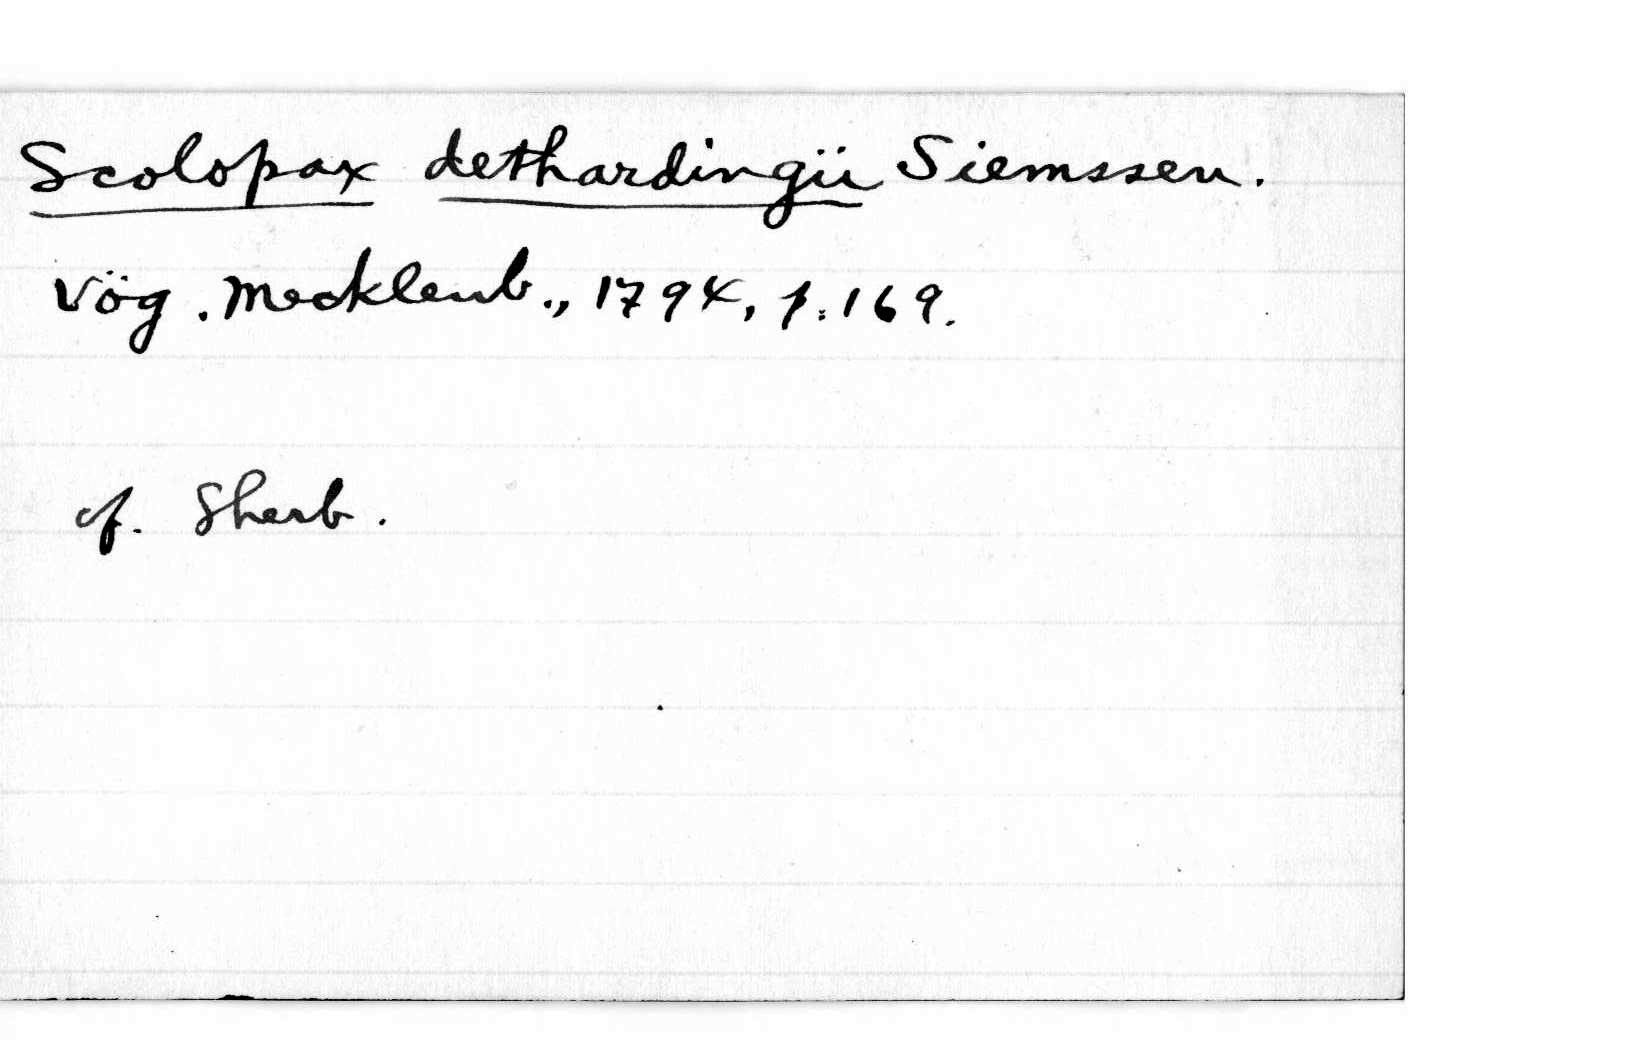 Scolopax dethardingii Siemssen.
Vög. Mecklenb., 1794, p. 169.
cf. Sherb.